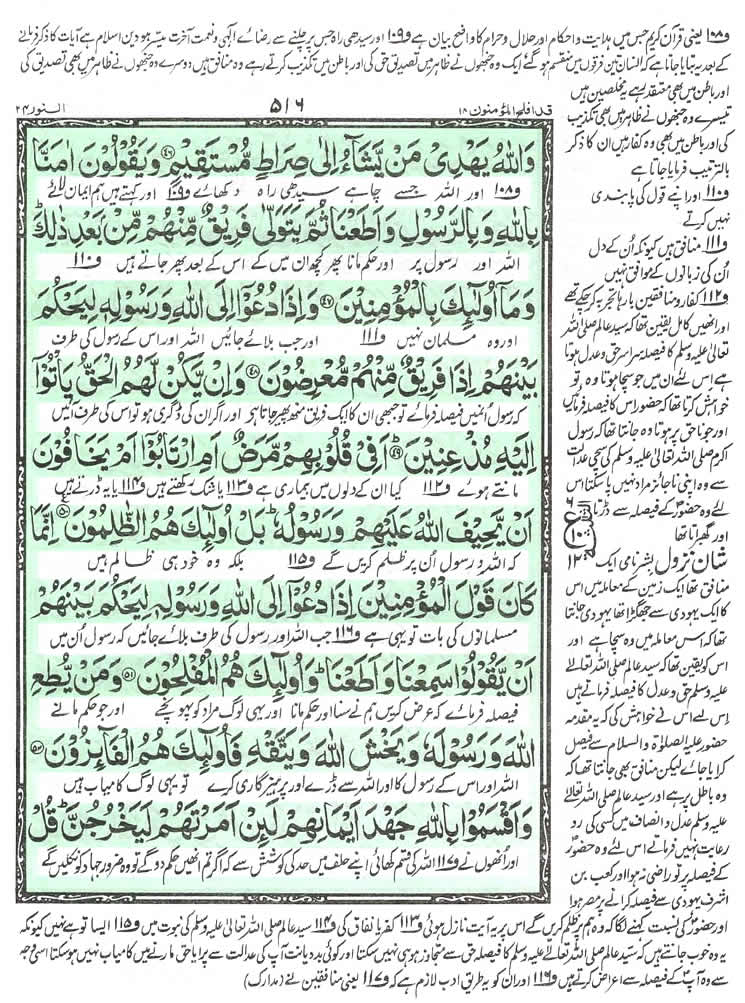 و۱۰۸ یعنی قرآن کریم جس میں ہدایت و احکام اور حلال و حرام کا واضح بیان ہے و۱۰۹ اور سیدھی راہ جس پر چلنے سے رضائے الٰہی و نعمت آخرت میسر ہو دین اسلام ہے آیات کا ذکر فرمانے
کے بعد یہ بتایا جاتا ہے کہ انسان تین فرقوں میں منقسم ہو گئے ایک وہ جنھوں نے ظاہر میں تصدیق حق کی اور باطن میں تکذیب کرتے رہے وہ منافق ہیں دوسرے وہ جنھوں نے ظاہر میں بھی تصدیق کی
قد افلح المؤمنون ۱۸
۵۱۶
النور ۲۴
وَاللّٰهُ یَهْدِیْ مَنْ یَّشَآءُ اِلٰى صِرَاطٍ مُّسْتَقِیْمٍ ۴۶ وَیَقُوْلُوْنَ اٰمَنَّا
و۱۰۸ اور اللہ جسے چاہے سیدھی راہ دکھائے و۱۰۹ اور کہتے ہیں ہم ایمان لائے
بِاللّٰهِ وَبِالرَّسُوْلِ وَاَطَعْنَا ثُمَّ یَتَوَلّٰى فَرِیْقٌ مِّنْهُمْ مِّنْۢ بَعْدِ ذٰلِكَ ؕ
اللہ اور رسول پر اور حکم مانا پھر کچھ ان میں کے اس کے بعد پھر جاتے ہیں و۱۱۰
وَمَاۤ اُولٰٓئِكَ بِالْمُؤْمِنِیْنَ ۴۷ وَاِذَا دُعُوْۤا اِلَى اللّٰهِ وَرَسُوْلِهٖ لِیَحْكُمَ
اور وہ مسلمان نہیں و۱۱۱ اور جب بلائے جائیں اللہ اور اس کے رسول کی طرف
بَیْنَهُمْ اِذَا فَرِیْقٌ مِّنْهُمْ مُّعْرِضُوْنَ ۴۸ وَاِنْ یَّكُنْ لَّهُمُ الْحَقُّ یَاْتُوْۤا
کہ رسول اُنہیں فیصلہ فرمائے تو جبھی ان کا ایک فریق منھ پھیر جاتا ہے اور اگر ان کی ڈگری ہو تو اس کی طرف آئیں
اِلَیْهِ مُذْعِنِیْنَ ۴۹ اَفِیْ قُلُوْبِهِمْ مَّرَضٌ اَمِ ارْتَابُوْۤا اَمْ یَخَافُوْنَ
مانتے ہوئے و۱۱۲ کیا ان کے دلوں میں بیماری ہے و۱۱۳ یا شک رکھتے ہیں و۱۱۴ یا یہ ڈرتے ہیں
اَنْ یَّحِیْفَ اللّٰهُ عَلَیْهِمْ وَرَسُوْلُهٗ ؕ بَلْ اُولٰٓئِكَ هُمُ الظّٰلِمُوْنَ ۵۰ اِنَّمَا
کہ اللہ و رسول اُن پر ظلم کریں گے و۱۱۵ بلکہ وہ خود ہی ظالم ہیں
كَانَ قَوْلَ الْمُؤْمِنِیْنَ اِذَا دُعُوْۤا اِلَى اللّٰهِ وَرَسُوْلِهٖ لِیَحْكُمَ بَیْنَهُمْ
مسلمانوں کی بات تو یہی ہے و۱۱۶ جب اللہ اور رسول کی طرف بلائے جائیں کہ رسول اُن میں
اَنْ یَّقُوْلُوْا سَمِعْنَا وَاَطَعْنَا ؕ وَاُولٰٓئِكَ هُمُ الْمُفْلِحُوْنَ ۵۱ وَمَنْ یُّطِعِ
فیصلہ فرمائے کہ عرض کریں ہم نے سنا اور حکم مانا اور یہی لوگ مراد کو پہونچے اور جو حکم مانے
اللّٰهَ وَرَسُوْلَهٗ وَیَخْشَ اللّٰهَ وَیَتَّقْهِ فَاُولٰٓئِكَ هُمُ الْفَآئِزُوْنَ ۵۲
اللہ اور اس کے رسول کا اور اللہ سے ڈرے اور پرہیزگاری کرے تو یہی لوگ کامیاب ہیں
وَاَقْسَمُوْا بِاللّٰهِ جَهْدَ اَیْمَانِهِمْ لَئِنْ اَمَرْتَهُمْ لَیَخْرُجُنَّ ؕ قُلْ
اور انھوں نے و۱۱۷ اللہ کی قسم کھائی اپنے حلف میں حد کی کوشش سے کہ اگر تم انھیں حکم دو گے تو وہ ضرور جہاد کو نکلیں گے
اور باطن میں بھی معتقد رہے یہ مخلصین ہیں
تیسرے وہ جنھوں نے ظاہر میں بھی تکذیب
کی اور باطن میں بھی وہ کفار ہیں ان کا ذکر
بالترتیب فرمایا جاتا ہے
و۱۱۰ اور اپنے قول کی پابندی
نہیں کرتے
و۱۱۱ منافق ہیں کیونکہ اُن کے دل
اُن کی زبانوں کے موافق نہیں
و۱۱۲ کفار و منافقین بارہا تجربہ کر چکے تھے
اور انھیں کامل یقین تھا کہ سید عالم صلی اللہ
تعالیٰ علیہ وسلم کا فیصلہ سراسر حق و عدل ہوتا
ہے اس لئے ان میں جو سچا ہوتا وہ تو
خواہش کرتا تھا کہ حضور اس کا فیصلہ فرمائیں
اور جو ناحق پر ہوتا وہ جانتا تھا کہ رسول
اکرم صلی اللہ تعالیٰ علیہ وسلم کی سچی عدالت
سے وہ اپنی ناجائز مراد نہیں پا سکتا اس
لئے وہ حضور کے فیصلہ سے ڈرتا
اور گھبراتا تھا
۶
ع
۱۰
۱۲
شان نزول بشر نامی ایک
منافق تھا ایک زمین کے معاملہ میں اس
کا ایک یہودی سے جھگڑا تھا یہودی جانتا
تھا کہ اس معاملہ میں وہ سچا ہے اور
اس کو یقین تھا کہ سید عالم صلی اللہ تعالیٰ
علیہ وسلم حق و عدل کا فیصلہ فرماتے ہیں
اس لئے اس نے خواہش کی کہ یہ مقدمہ
حضور علیہ الصلوٰۃ والسلام سے فیصل
کرایا جائے لیکن منافق بھی جانتا تھا کہ
وہ باطل پر ہے اور سید عالم صلی اللہ تعالیٰ
علیہ وسلم عدل و انصاف میں کسی کی رو
رعایت نہیں فرماتے اس لئے وہ حضور
کے فیصلہ پر تو راضی نہ ہوا اور کعب بن
اشرف یہودی سے فیصلہ کرانے پر مصر ہوا
اور حضور کی نسبت کہنے لگا کہ وہ ہم پر ظلم کریں گے اس پر یہ آیت نازل ہوئی و۱۱۳ کفر یا نفاق کی و۱۱۴ سید عالم صلی اللہ تعالیٰ علیہ وسلم کی نبوت میں و۱۱۵ ایسا تو ہے نہیں کیونکہ
یہ وہ خوب جانتے ہیں کہ سید عالم صلی اللہ تعالیٰ علیہ وسلم کا فیصلہ حق سے متجاوز ہو ہی نہیں سکتا اور کوئی بد دیانت آپ کی عدالت سے پرایا حق مارنے میں کامیاب نہیں ہو سکتا اسی وجہ
سے وہ آپ کے فیصلہ سے اعراض کرتے ہیں و۱۱۶ اور ان کو یہ طریق ادب لازم ہے کہ و۱۱۷ یعنی منافقین نے (مدارک)